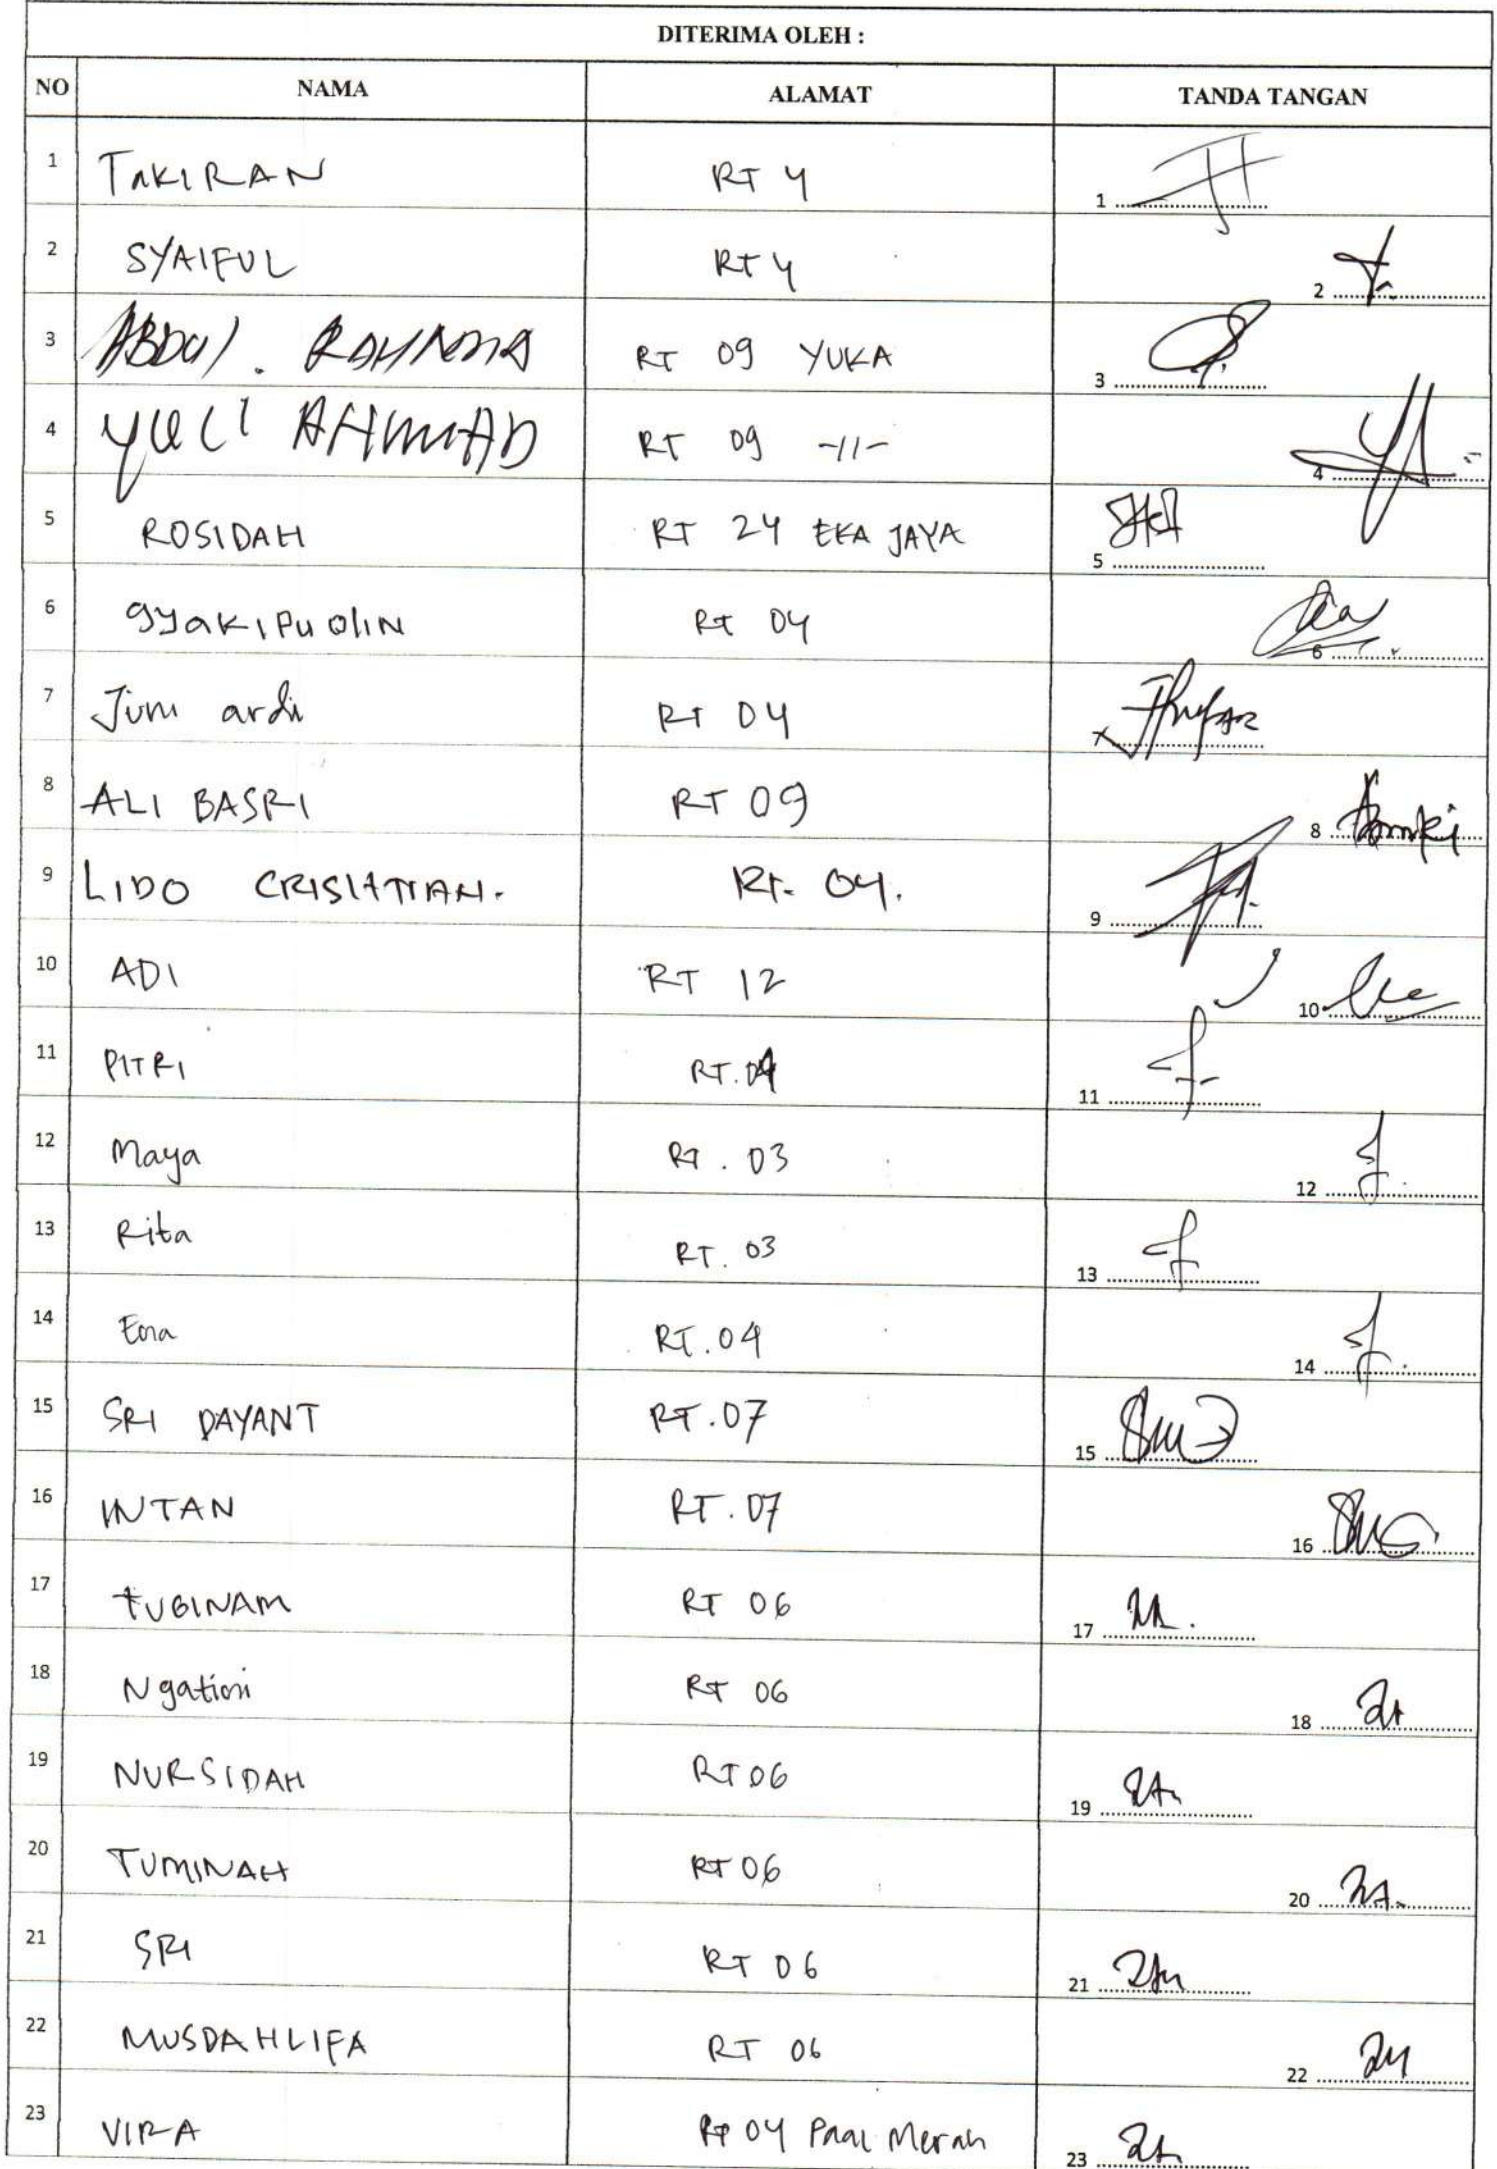 DITERIMA OLEH :
NO NAMA ALAMAT TANDA TANGAN
1 TAKIRAN RT 4 1
2 SYAIFUL RT 4 2
3 ABDUL. RT 09 YUKA 3
4 YULI AHMAD RT 09 -11- 4
5 ROSIDAH RT 24 EKA JAYA 5
6 RT 04 6
7 Juni ardi RT 04
8 ALI BASRI RT 09 8
9 LIDO RT. 04. 9
10 ADI RT 12 10
11 PITRI RT. 04 11
12 Maya RT. 03 12
13 Rita RT. 03 13
14 RT. 04 14
15 SRI DAYANT RT. 07 15
16 INTAN RT. 07 16
17 RT 06 17
18 RT 06 18
19 NURSIDAH RT 06 19
20 TUMINAH RT 06 20
21 SRI RT 06 21
22 MUSDAHLIFA RT 06 22
23 VIRA RT 04 Paal Merah 23